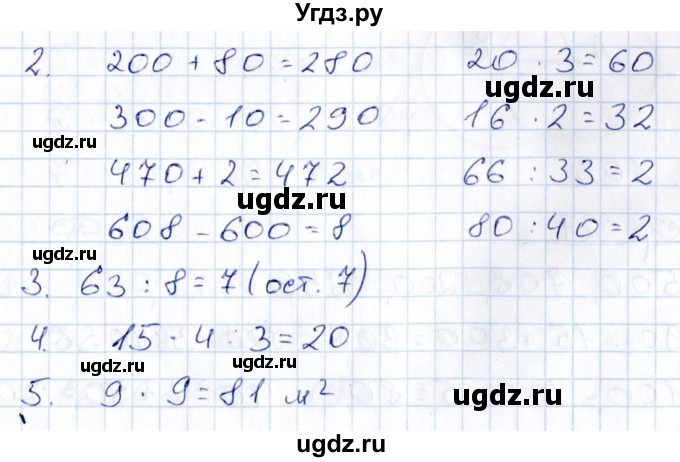 Угдз.ру
2. 200 + 80 = 280 20 · 3 = 60
ugdz.ru ugdz.ru
300 - 10 = 290 16 · 2 = 32
ugdz.ru ugdz.ru
470 + 2 = 472 66 : 33 = 2
ugdz.ru
608 - 600 = 8 80 : 40 = 2
ugdz.ru ugdz.ru
3. 63 : 8 = 7 (ост. 7)
4. 15 · 4 : 3 = 20
ugdz.ru ugdz.ru
5. 9 · 9 = 81 м²
ugdz.ru
ugdz.ru